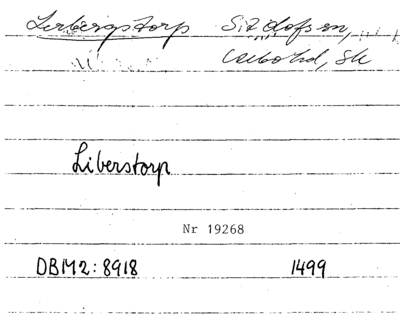 Lerbergstorp S:t Olofs sn,
Liberstorp
Nr 19268
DBM2:8918 1499